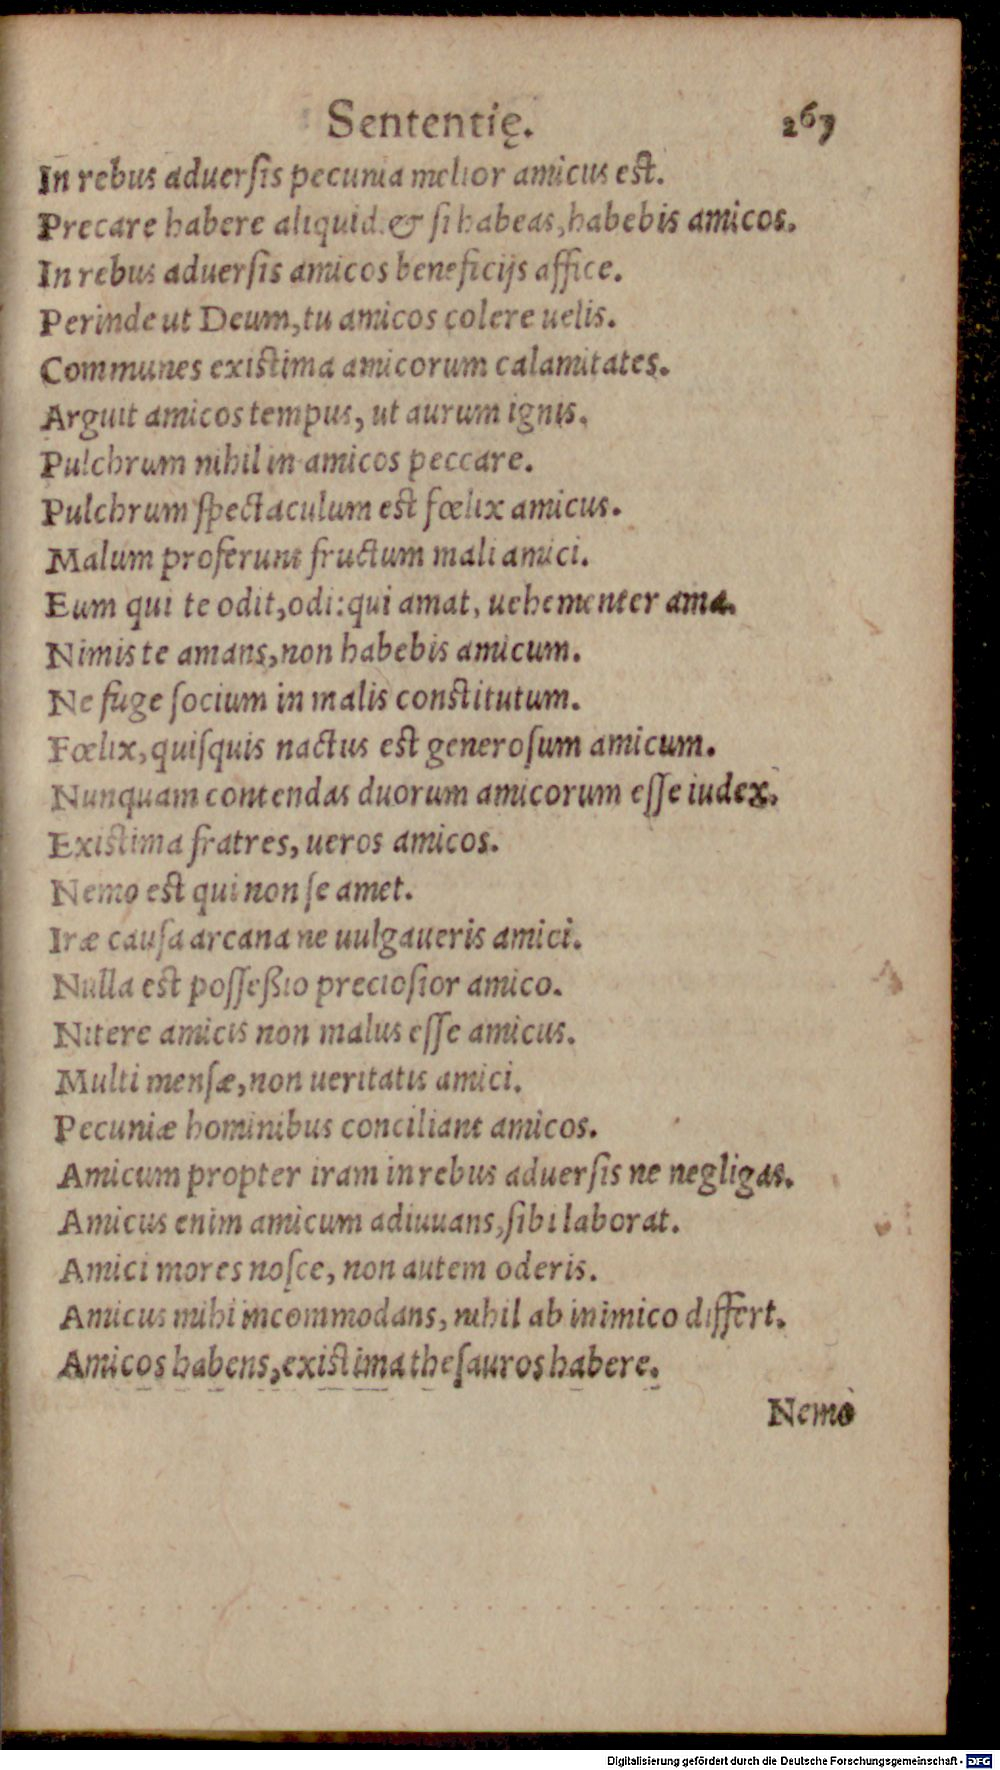 Sententię. 267
In rebus aduerſis pecunia melior amicus est.
Precare habere aliquid. & ſi habeas, habebis amicos.
In rebus aduerſis amicos beneficijs affice.
Perinde ut Deum, tu amicos colere uelis.
Communes existima amicorum calamitates.
Arguit amicos tempus, ut aurum ignis.
Pulchrum nihil in amicos peccare.
Pulchrum ſpectaculum est fœlix amicus.
Malum proferunt fructum mali amici.
Eum qui te odit, odi: qui amat, uehementer ama.
Nimis te amans, non habebis amicum.
Ne fuge ſocium in malis constitutum.
Fœlix, quiſquis nactus est generoſum amicum.
Nunquam contendas duorum amicorum eſſe iudex.
Existima fratres, ueros amicos.
Nemo est qui non ſe amet.
Iræ cauſa arcana ne uulgaueris amici.
Nulla est poſſeßio precioſior amico.
Nitere amicis non malus eſſe amicus.
Multi menſæ, non ueritatis amici.
Pecuniæ hominibus conciliant amicos.
Amicum propter iram in rebus aduerſis ne negligas.
Amicus enim amicum adiuuans, ſibi laborat.
Amici mores noſce, non autem oderis.
Amicus mihi incommodans, nihil ab inimico differt.
Amicos habens, existima theſauros habere.
Nemo
Digitalisierung gefördert durch die Deutsche Forschungsgemeinschaft - DFG